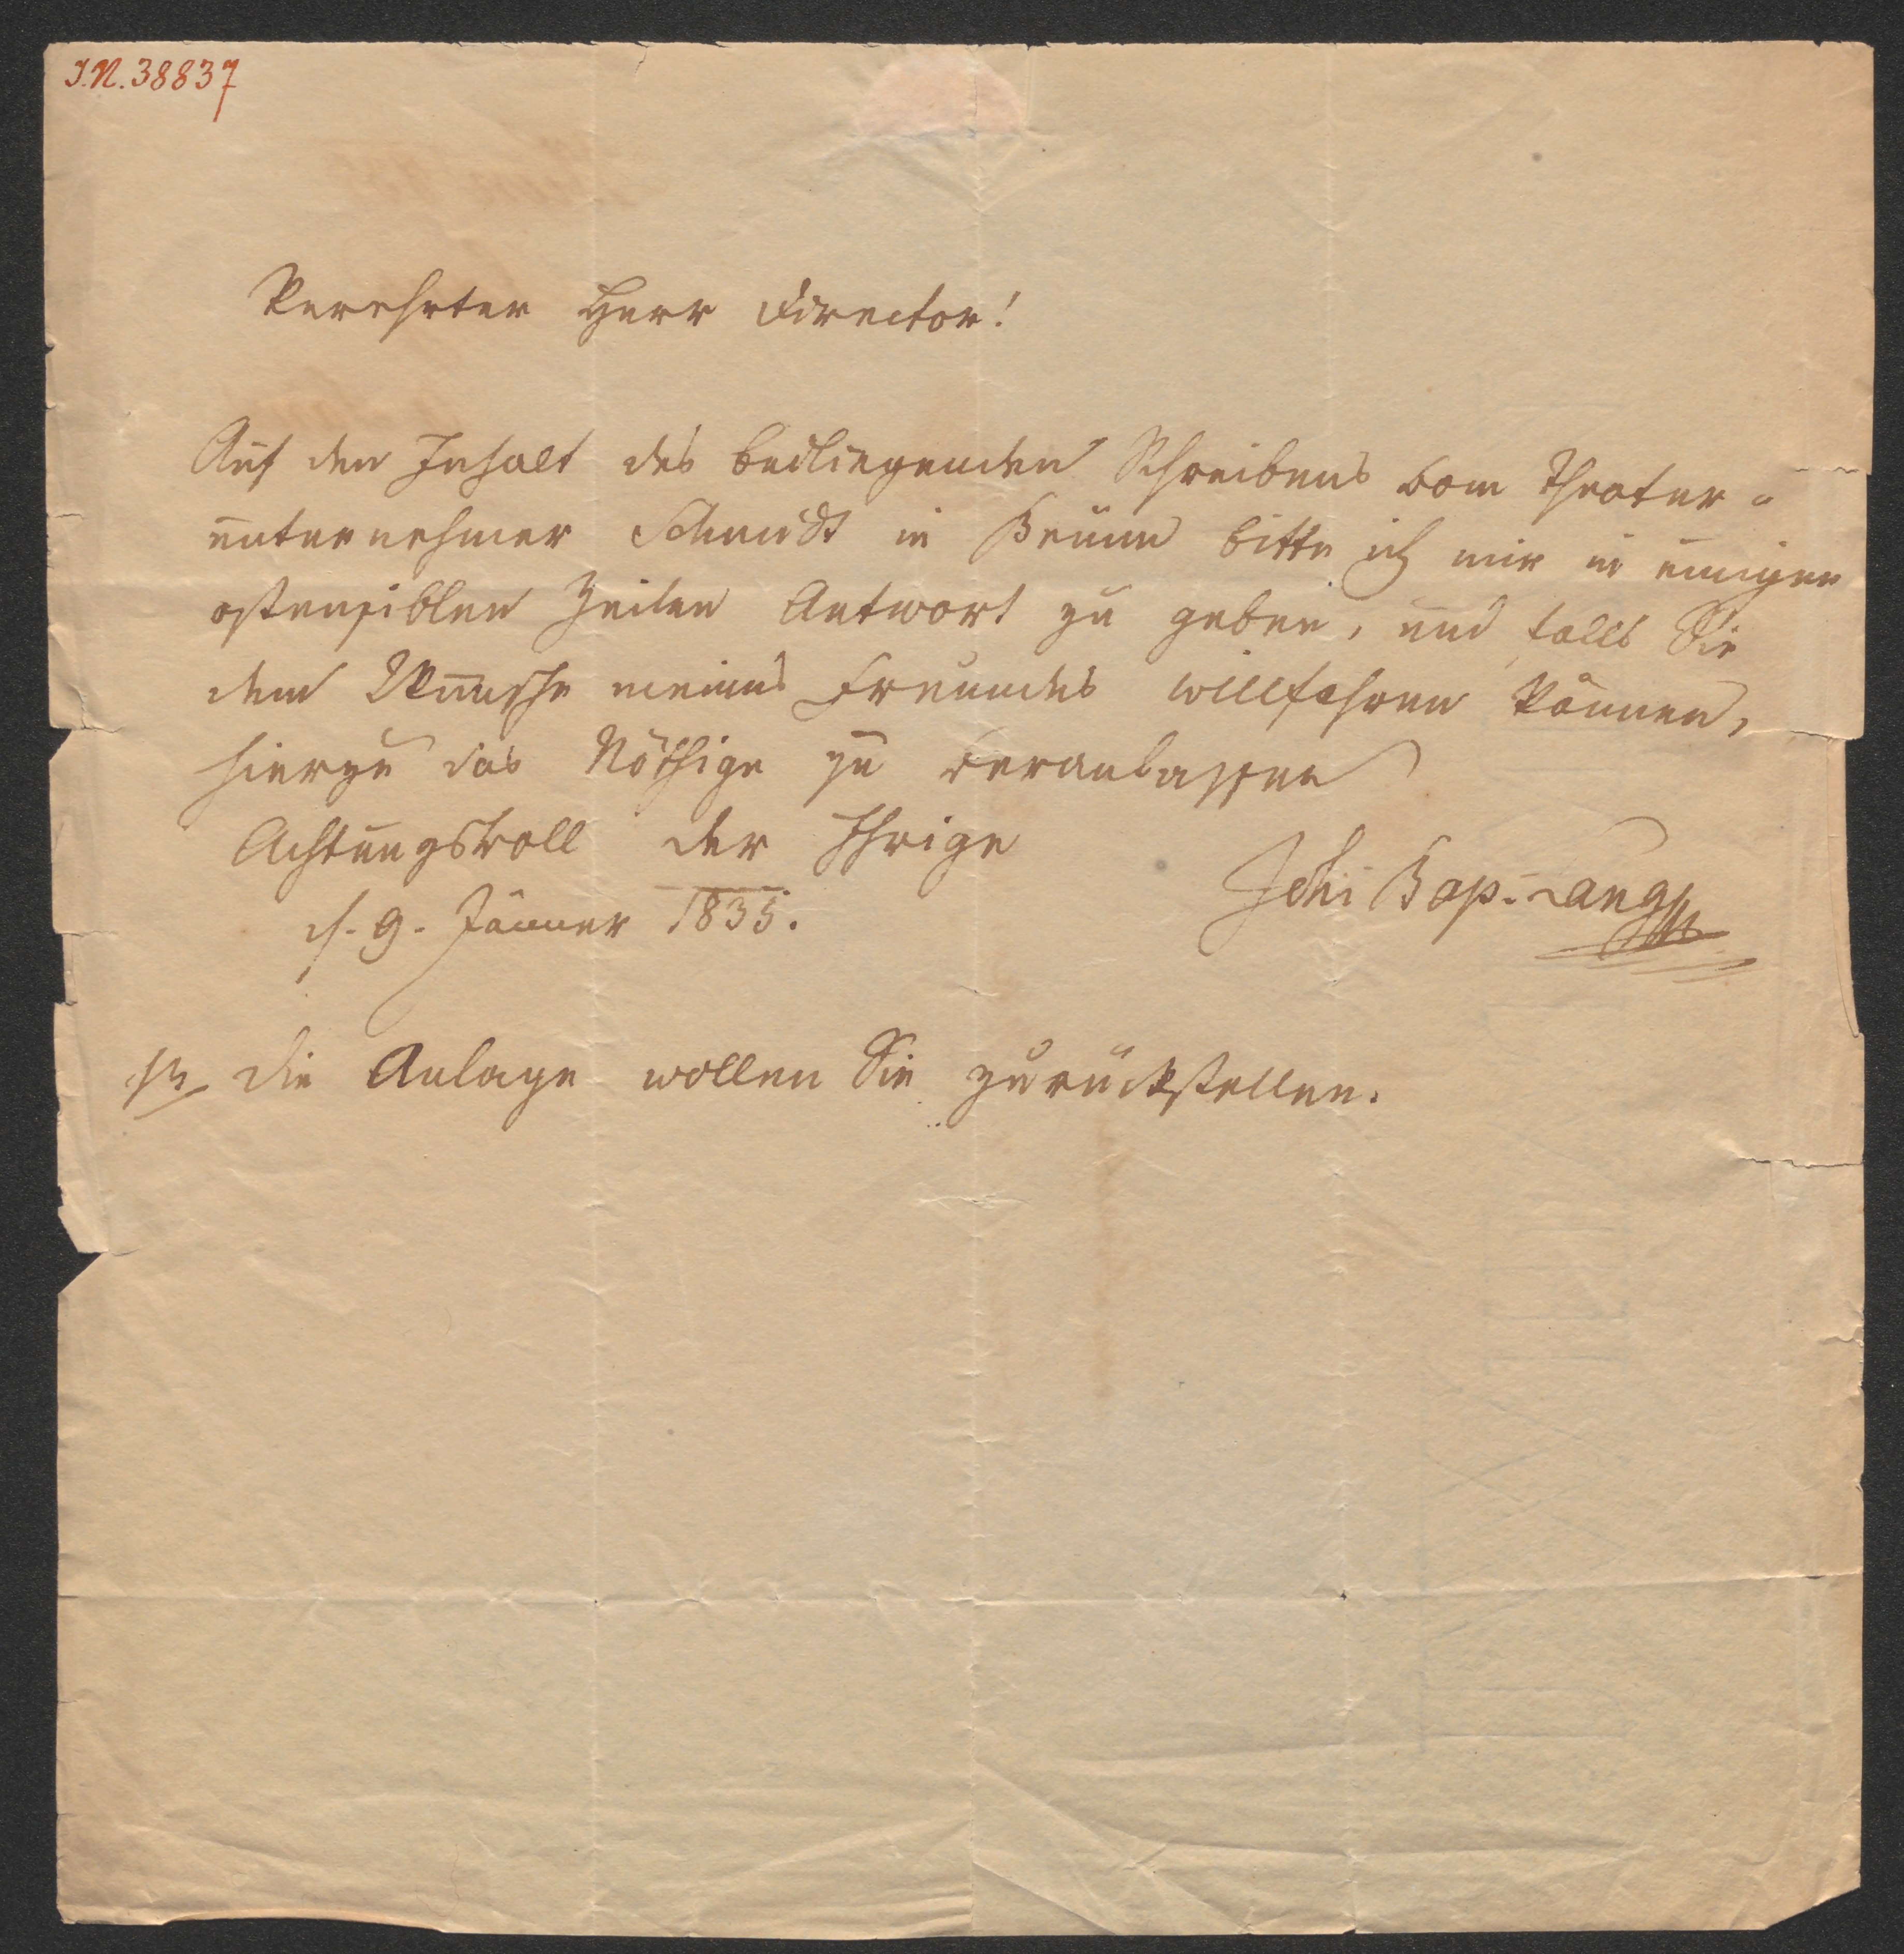 I.N. 38837
Verehrter Herr Director!
Auf den Inhalt des beiliegenden Schreibens vom Theater-
unternehmer Schmidt in Brünn bitte ich mir in einigen
ostensiblen Zeilen Antwort zu geben, und falls Sie
dem Wunsche meines Freundes willfahren können,
hierzu das Nöthige zu veranlassen
Achtungsvoll der Ihrige
d. 9. Jänner 1835. Joh: Bap. Lang
die Anlage wollen Sie zurückstellen.